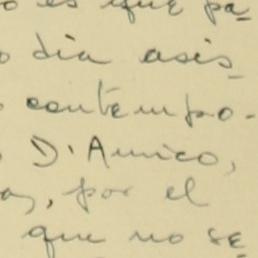 es que pa-
dia asis-
contempo-
D'Amico,
por el
que no se